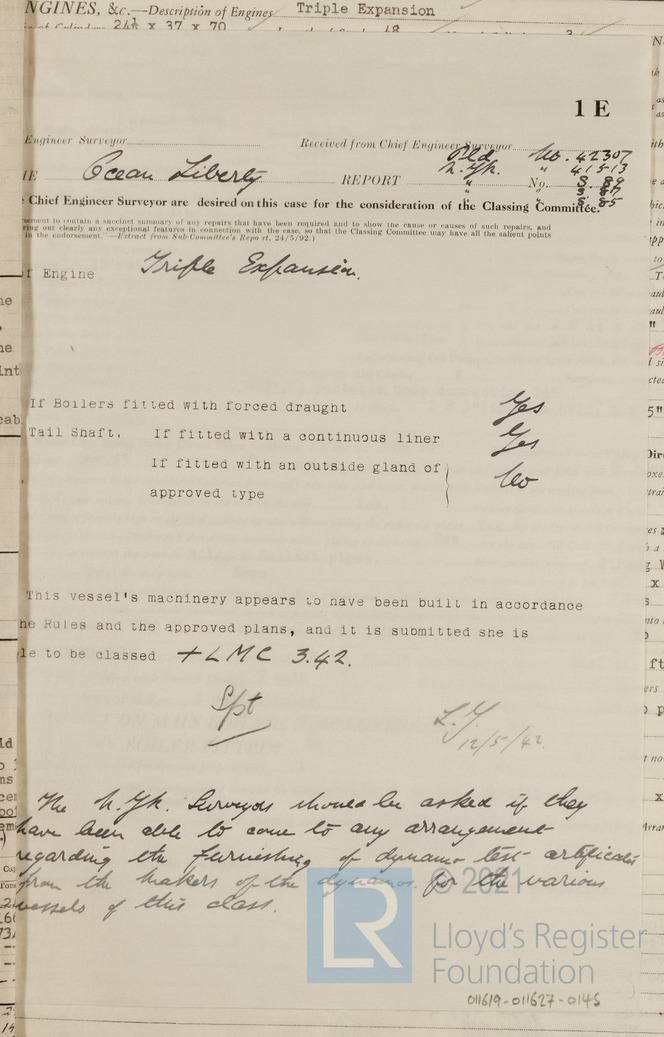 NGINES, &c.—Description of Engines Triple Expansion
of Cylinders 24½ x 37 x 70
1 E
Engineer Surveyor Received from Chief Engineer Surveyor
Pld. No. 42307
N.Yk. " 41513
Ocean Liberty REPORT No.
Chief Engineer Surveyor are desired on this case for the consideration of the Classing Committee.
sement to contain a succinct summary of any repairs that have been required and to show the cause or causes of such repairs, and
ring out clearly any exceptional features in connection with the case, so that the Classing Committee may have all the salient points
in the endorsement."—Extract from Sub-Committee's Report, 24/5/92.)
f Engine Triple Expansion.
If Boilers fitted with forced draught Yes
Tail Shaft. If fitted with a continuous liner Yes
If fitted with an outside gland of
approved type No
This vessel's machinery appears to have been built in accordance
he Rules and the approved plans, and it is submitted she is
le to be classed +LMC 3.42.
Spt
L.Y.
12/5/42.
The N.Yk. Surveyors should be asked if they
have been able to come to any arrangement
regarding the furnishing of dynamo test certificates
from the makers of the dynamos for the various
vessels of this class.
© 2021
LR
Lloyd's Register
Foundation
011619-011627-0145